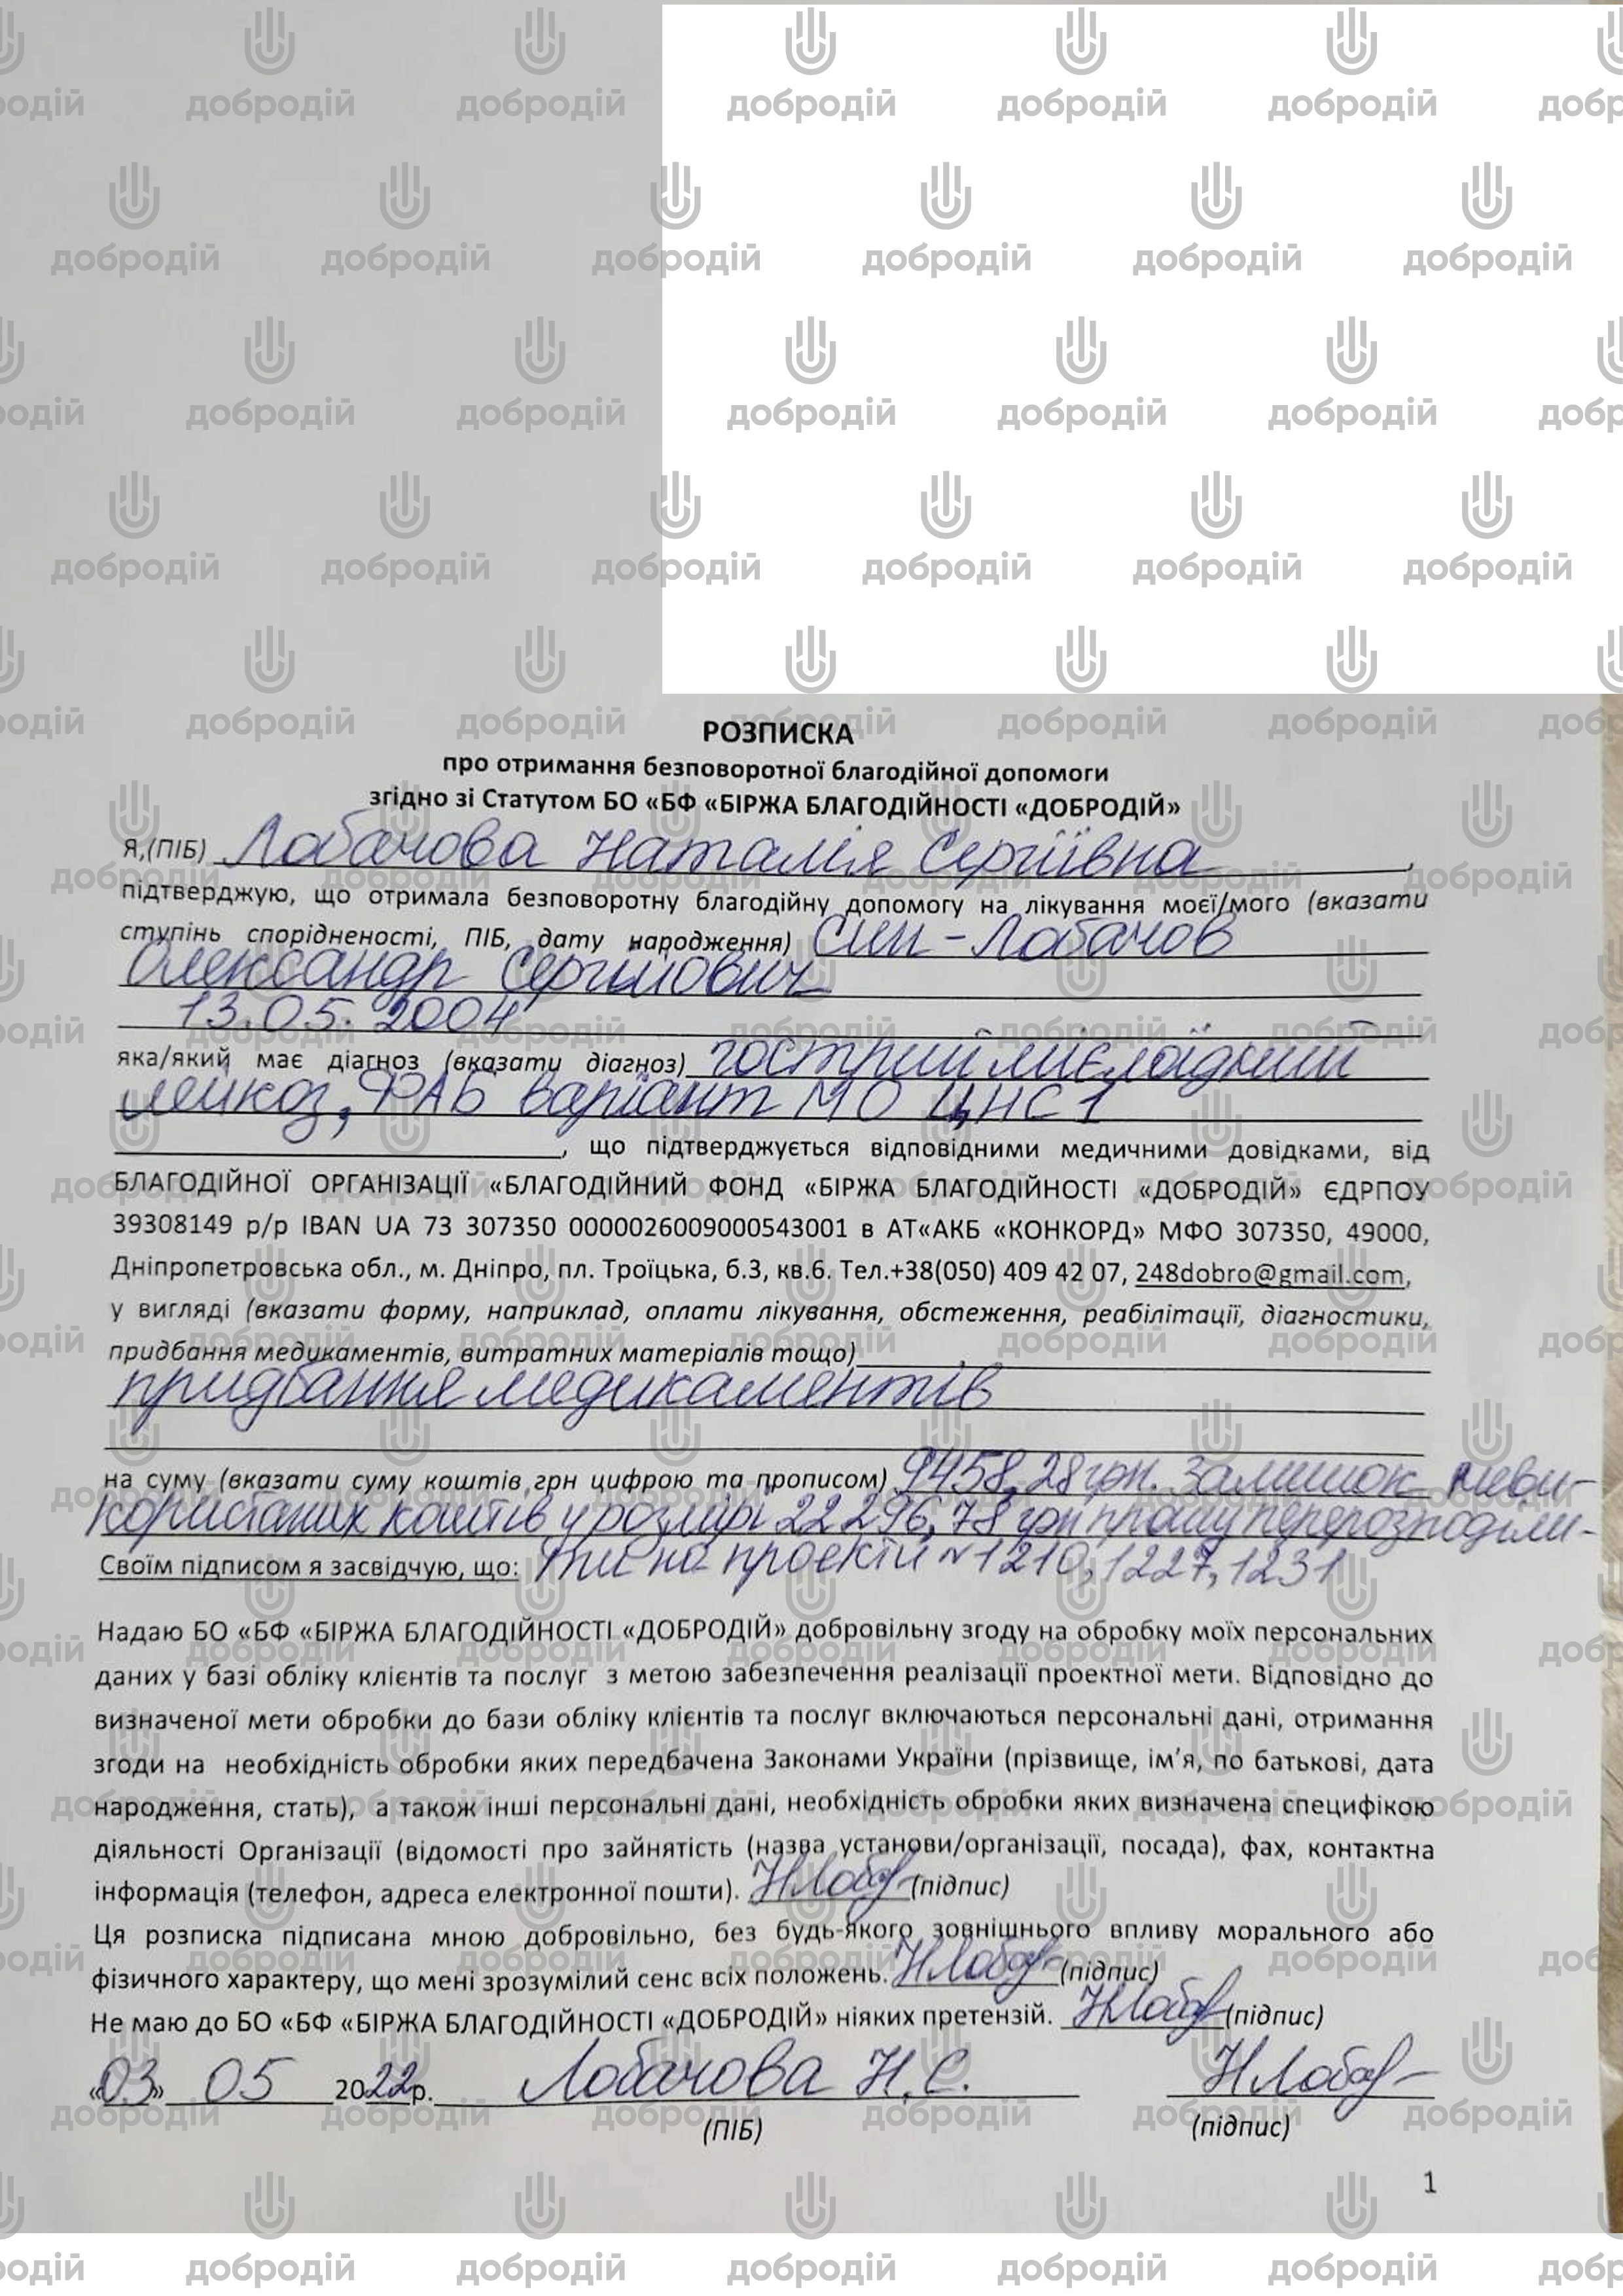 РОЗПИСКА
про отримання безповоротної благодійної допомоги
згідно зі Статутом БО «БФ «БІРЖА БЛАГОДІЙНОСТІ «ДОБРОДІЙ»
Я,(ПІБ) Лобачова Наталія Сергіївна,
підтверджую, що отримала безповоротну благодійну допомогу на лікування моєї/мого (вказати
ступінь спорідненості, ПІБ, дату народження) син - Лобачов
Олександр Сергійович
13.05.2004
яка/який має діагноз (вказати діагноз) гострий мієлоїдний
лейкоз, ФАБ варіант М0 ЦНС 1
, що підтверджується відповідними медичними довідками, від
БЛАГОДІЙНОЇ ОРГАНІЗАЦІЇ «БЛАГОДІЙНИЙ ФОНД «БІРЖА БЛАГОДІЙНОСТІ «ДОБРОДІЙ» ЄДРПОУ
39308149 р/р IBAN UA 73 307350 0000026009000543001 в АТ«АКБ «КОНКОРД» МФО 307350, 49000,
Дніпропетровська обл., м. Дніпро, пл. Троїцька, б.3, кв.6. Тел.+38(050) 409 42 07, 248dobro@gmail.com,
у вигляді (вказати форму, наприклад, оплати лікування, обстеження, реабілітації, діагностики,
придбання медикаментів, витратних матеріалів тощо)
придбання медикаментів
на суму (вказати суму коштів,грн цифрою та прописом) 9458,28 грн. Залишок неви-
користаних коштів у розмірі 22 296,78 грн прошу перерозподіли-
Своїм підписом я засвідчую, що: ти на проєкти №1210, 1227, 1231
Надаю БО «БФ «БІРЖА БЛАГОДІЙНОСТІ «ДОБРОДІЙ» добровільну згоду на обробку моїх персональних
даних у базі обліку клієнтів та послуг з метою забезпечення реалізації проектної мети. Відповідно до
визначеної мети обробки до бази обліку клієнтів та послуг включаються персональні дані, отримання
згоди на необхідність обробки яких передбачена Законами України (прізвище, ім’я, по батькові, дата
народження, стать), а також інші персональні дані, необхідність обробки яких визначена специфікою
діяльності Організації (відомості про зайнятість (назва установи/організації, посада), фах, контактна
інформація (телефон, адреса електронної пошти). НЛобач (підпис)
Ця розписка підписана мною добровільно, без будь-якого зовнішнього впливу морального або
фізичного характеру, що мені зрозумілий сенс всіх положень. НЛобач (підпис)
Не маю до БО «БФ «БІРЖА БЛАГОДІЙНОСТІ «ДОБРОДІЙ» ніяких претензій. НЛобач (підпис)
«03» 05 2022р. Лобачова Н.С. НЛобач
(ПІБ) (підпис)
1
добродій